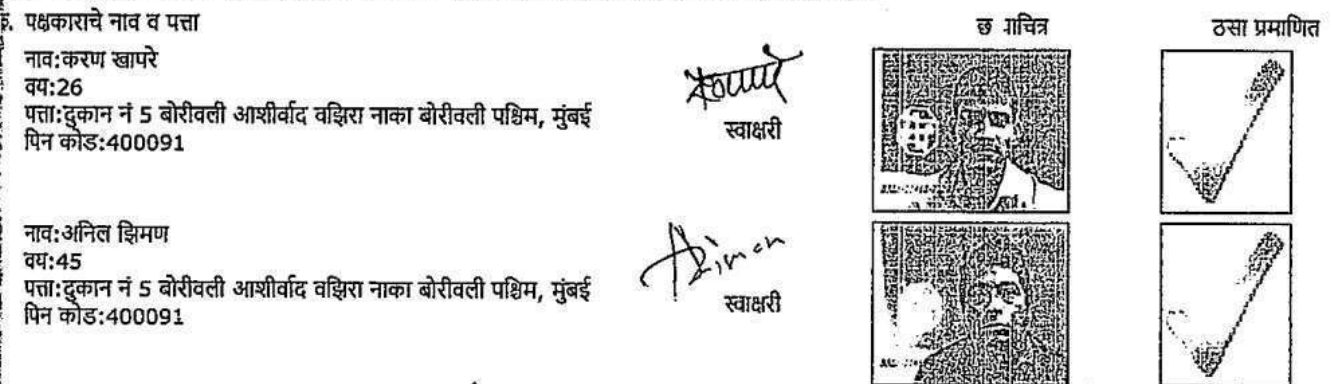 क्र. पक्षकाराचे नाव व पत्ता
छ ााचित्र
ठसा प्रमाणित
नाव:करण खापरे
वय:26
पत्ता:दुकान नं 5 बोरीवली आशीर्वाद वझिरा नाका बोरीवली पश्चिम, मुंबई
पिन कोड:400091
स्वाक्षरी
नाव:अनिल झिमण
वय:45
पत्ता:दुकान नं 5 बोरीवली आशीर्वाद वझिरा नाका बोरीवली पश्चिम, मुंबई
पिन कोड:400091
स्वाक्षरी